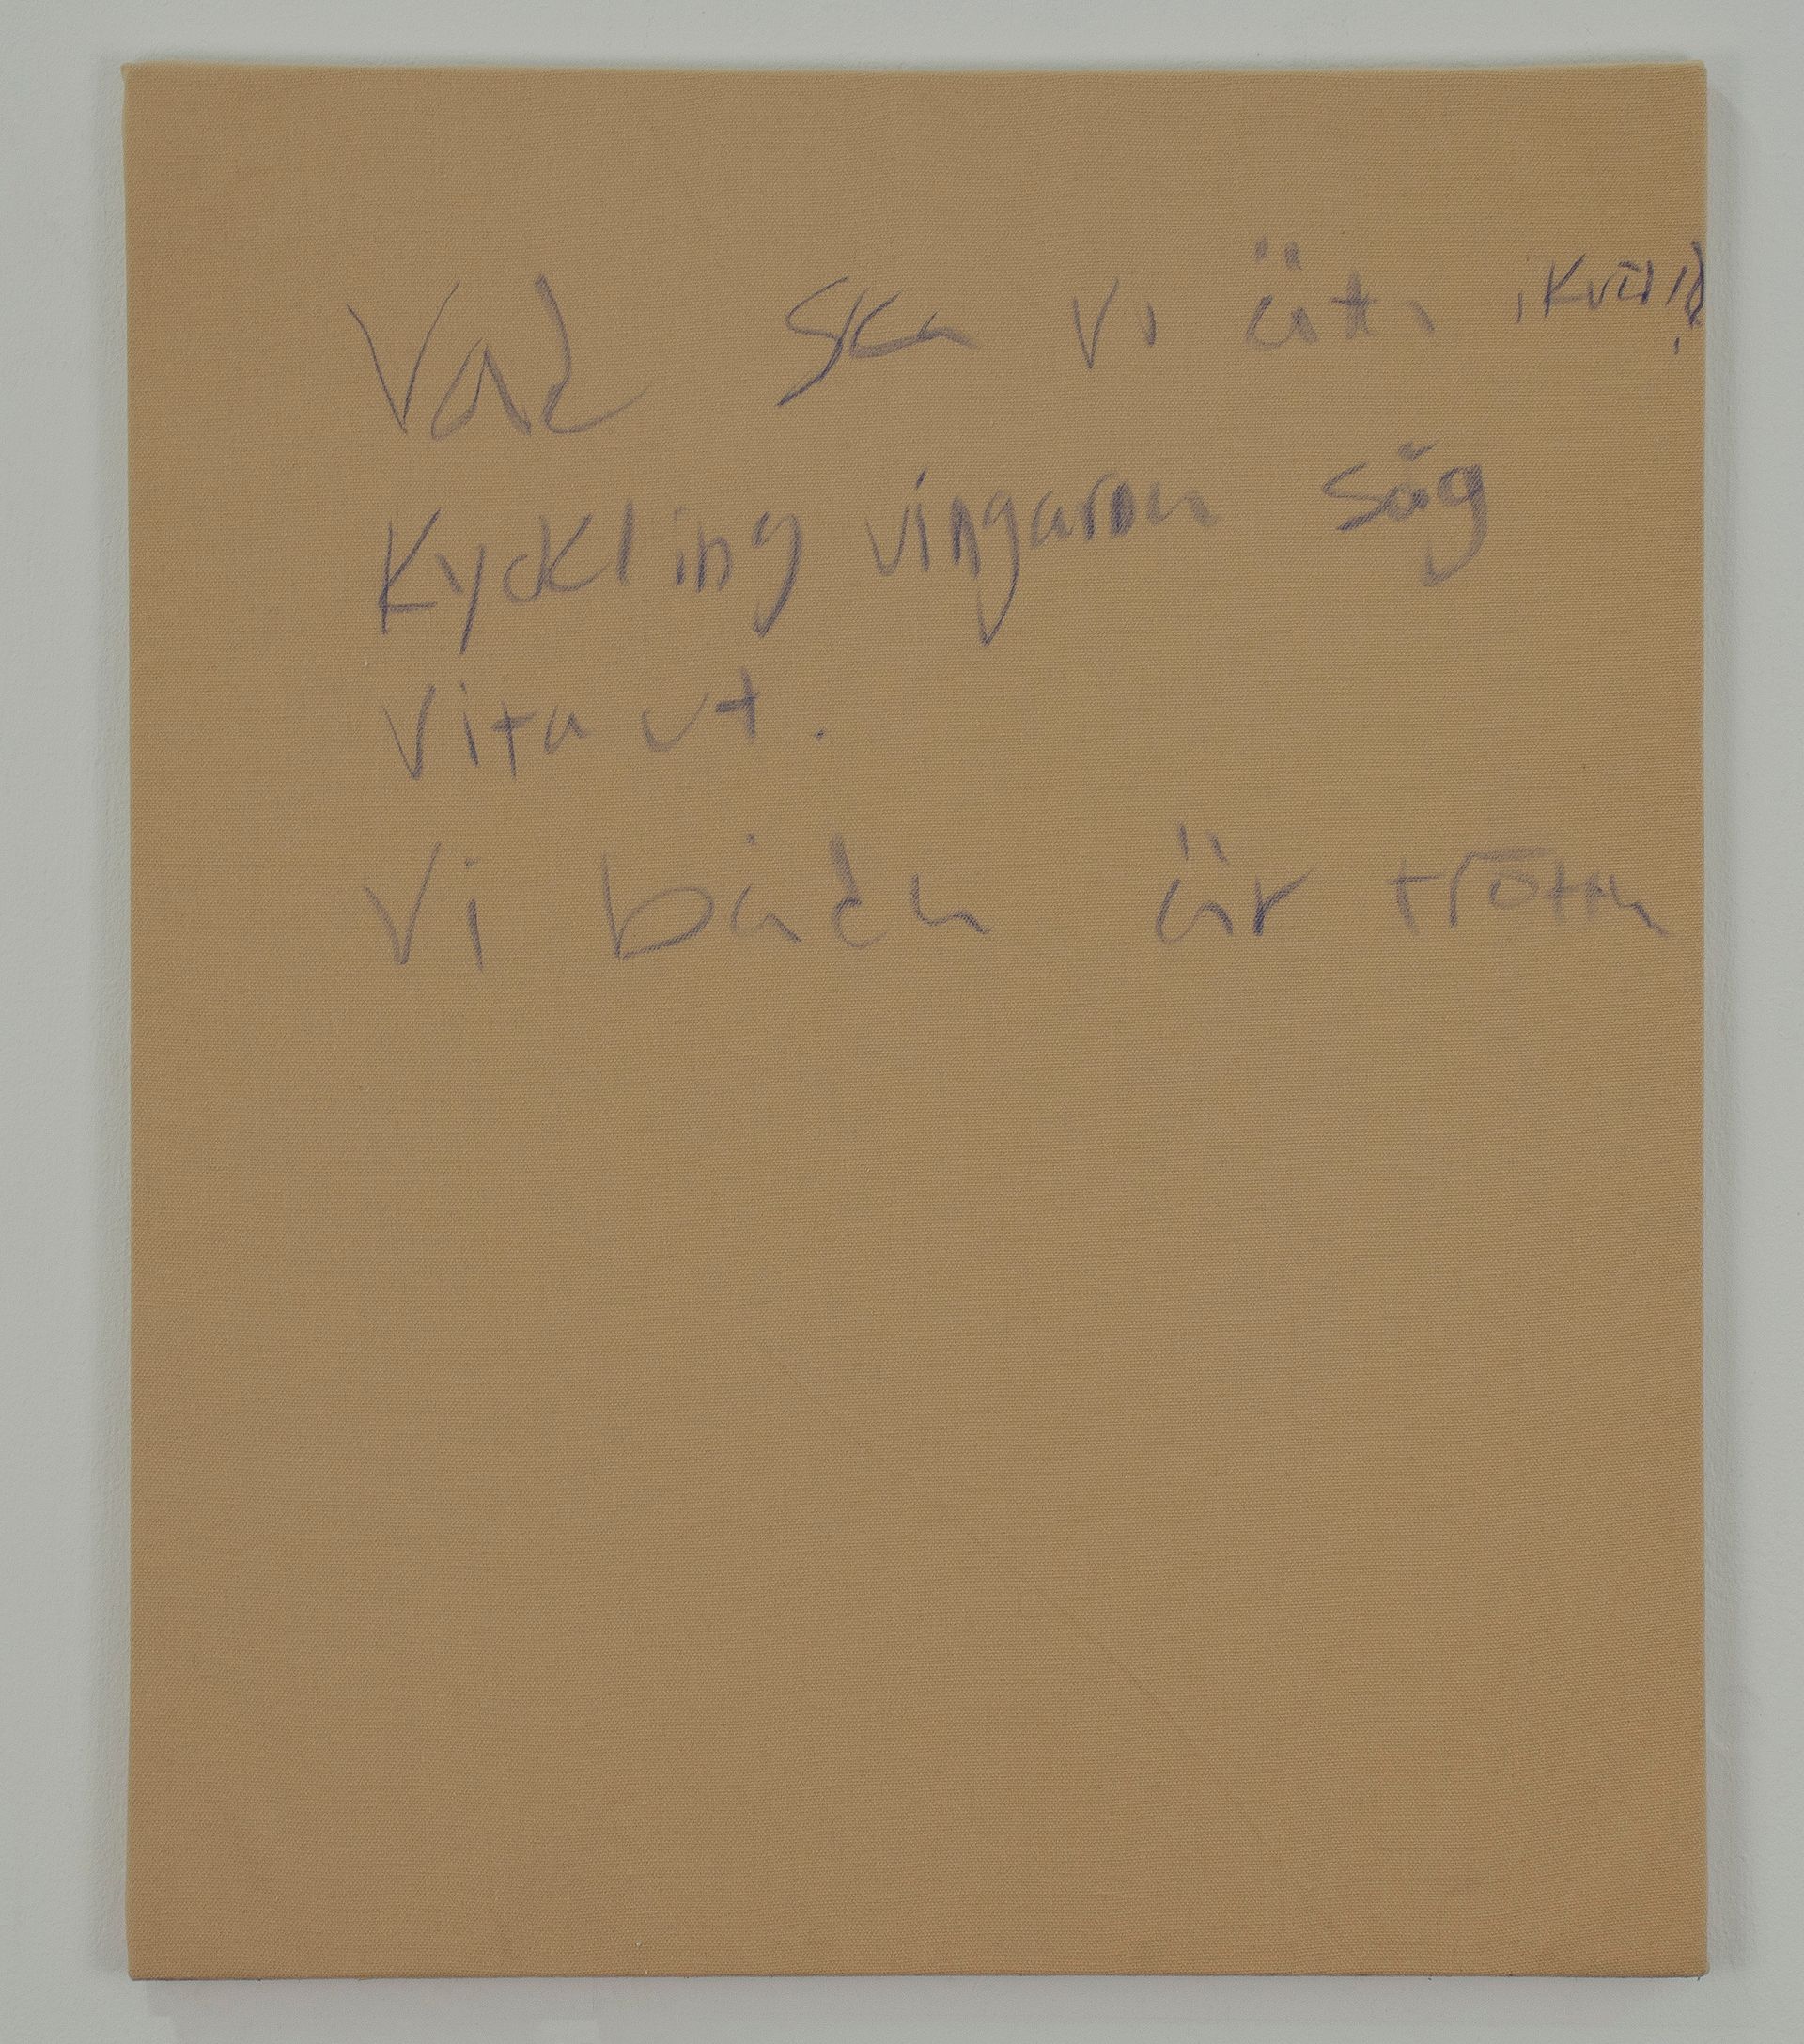 Vad ska vi äta ikväll?
Kyckling vingarna såg
vita ut.
Vi båda är trötta